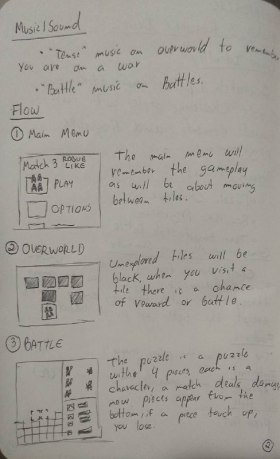 Music/Sound
• "Tense" music on overworld to remember
you are on a war
• "Battle" music on Battles.
Flow
① Main Menu
Match 3 ROGUE
LIKE
PLAY
OPTIONS
The main menu will
remember the gameplay
as will be about moving
between tiles.
② OVERWORLD
Unexplored tiles will be
black, when you visit a
tile there is a chance
of reward or battle.
③ BATTLE
The puzzle is a puzzle
with 4 pieces, each is a
character, a match deals damage
now pieces appear from the
bottom, if a piece touch up,
you lose.
②